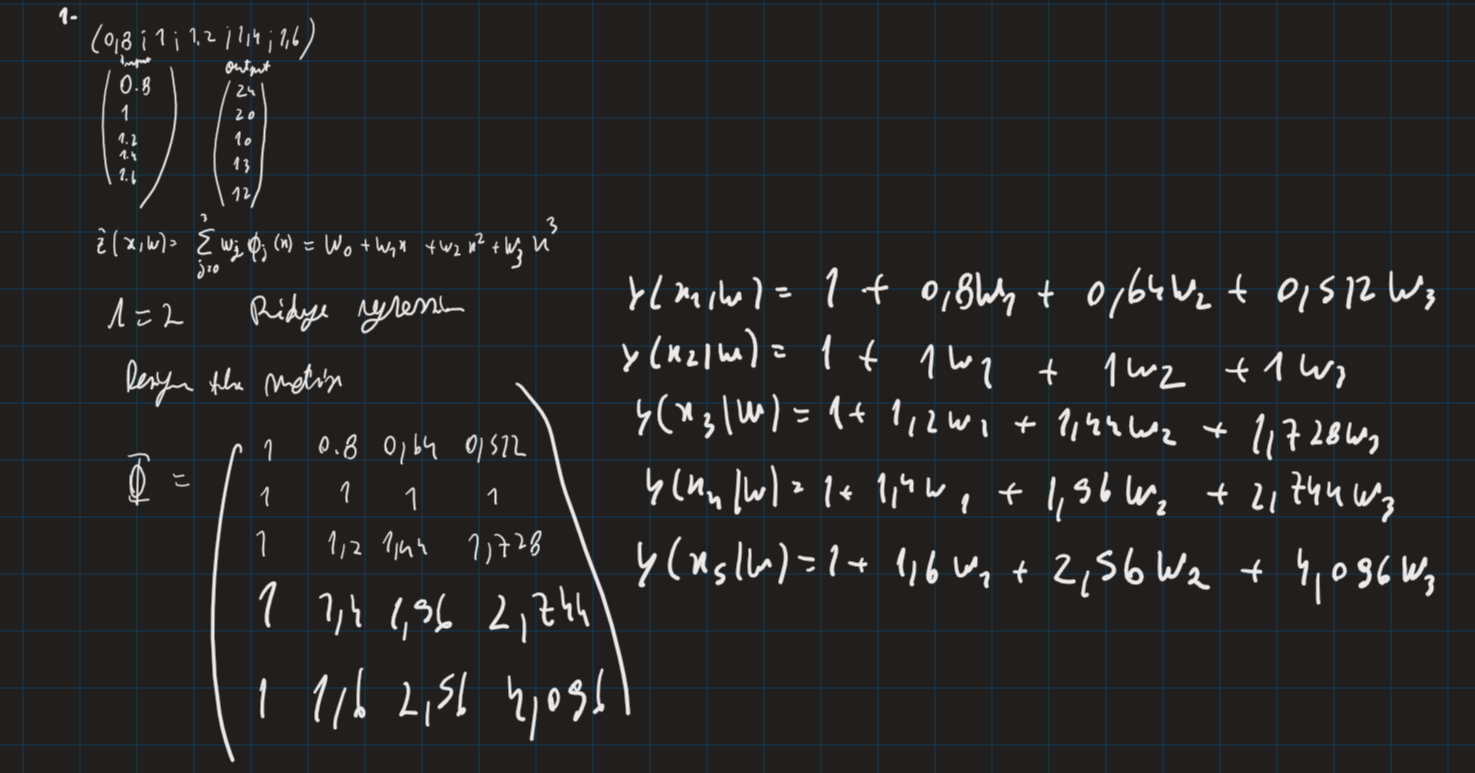 1-
(0,8 ; 1 ; 1.2 ; 1,4 ; 1,6)
input output
0.8 24
1 20
1.2 10
1.4 13
1.6 12
ẑ(x,w) = 3 Σ j=0 wj ϕj (x) = W0 + w1x + w2 x² + w3 x³
λ = 2 Ridge regression
Design the matrix
Φ =
1 0.8 0,64 0,512
1 1 1 1
1 1,2 1,44 1,728
1 1,4 1,96 2,744
1 1,6 2,56 4,096
y(x1,w) = 1 + 0,8w1 + 0,64w2 + 0,512w3
y(x2|w) = 1 + 1w1 + 1w2 + 1w3
y(x3|w) = 1 + 1,2w1 + 1,44w2 + 1,728w3
y(x4|w) = 1 + 1,4w1 + 1,96w2 + 2,744w3
y(x5|w) = 1 + 1,6w1 + 2,56w2 + 4,096w3